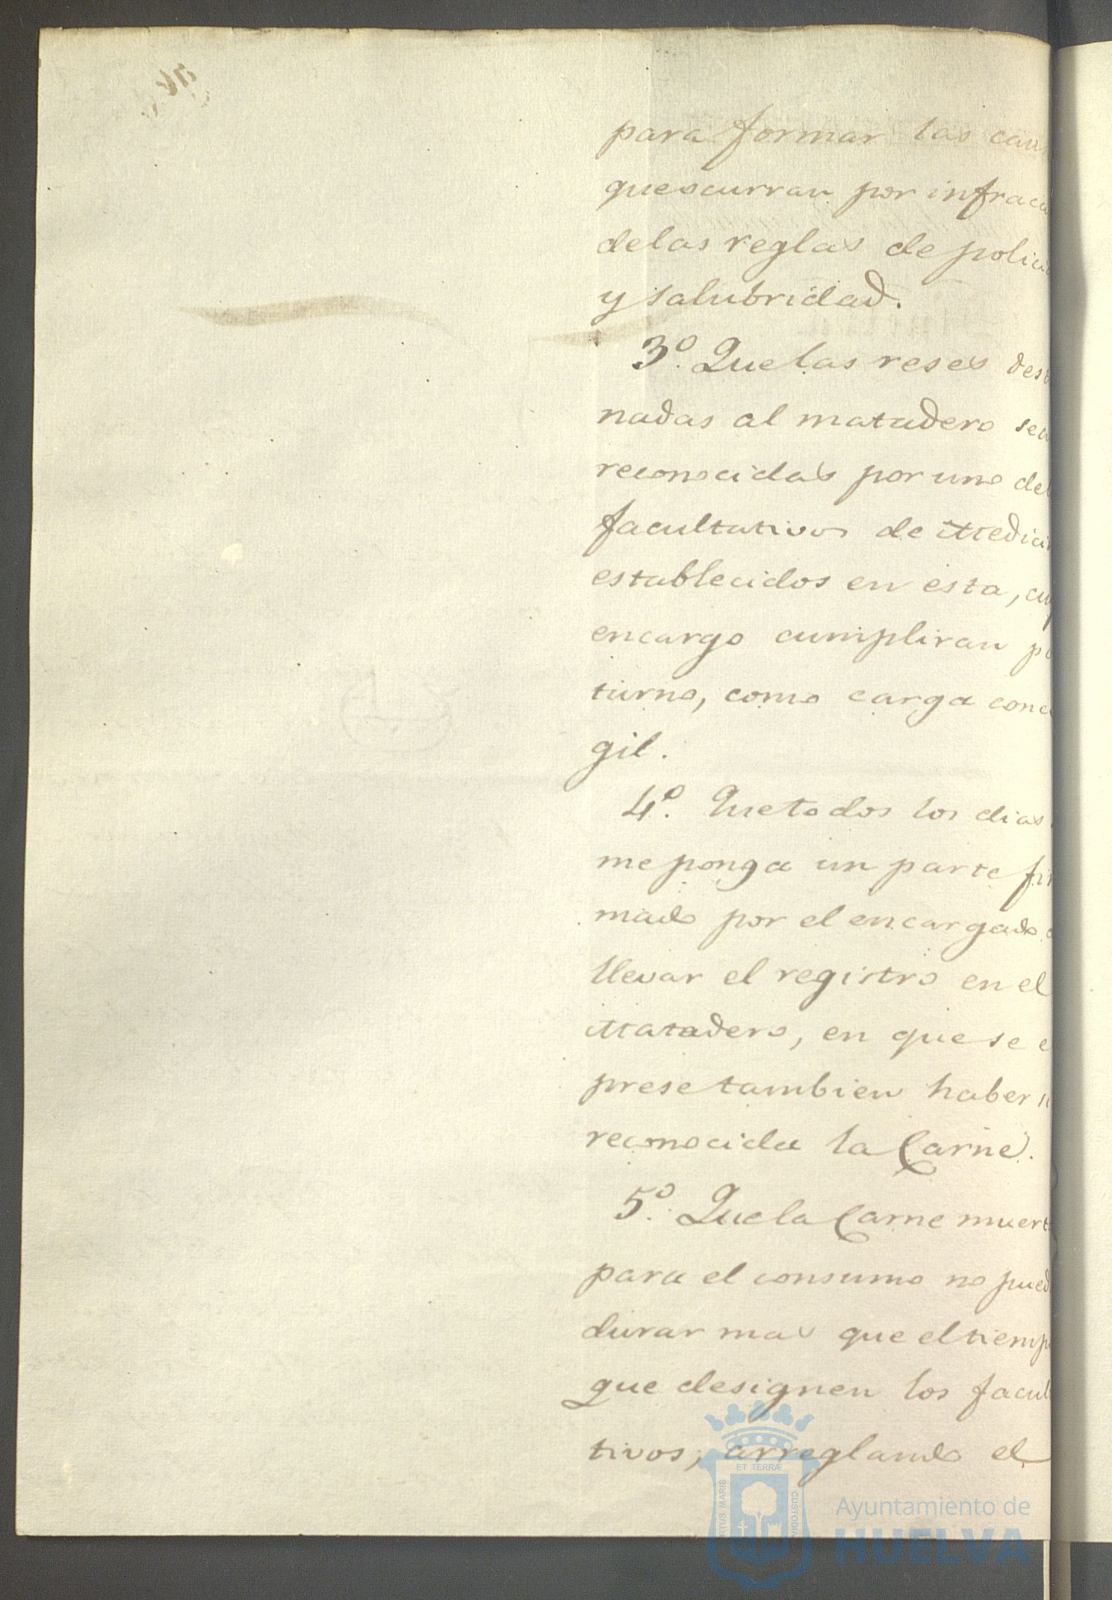 para formar las cau
que ocurran por infracci
de las reglas de polici
y salubridad.
3º. Que las reses des
nadas al matadero sea
reconocidas por uno de
facultativos de Medici
establecidos en esta, cuy
encargo cumpliran po
turno, como carga conce
gil.
4º. Que todos los dias
me ponga un parte fir
mado por el encargado
llevar el registro en el
Matadero, en que se e
prese tambien haber si
reconocida la Carne.
5º. Que la Carne muert
para el consumo no pued
durar mas que el tiemp
que designen los facul
tivos; arreglando el
ET TERRÆ
PORTUS MARIS
CUSTODIA
Ayuntamiento de
HUELVA